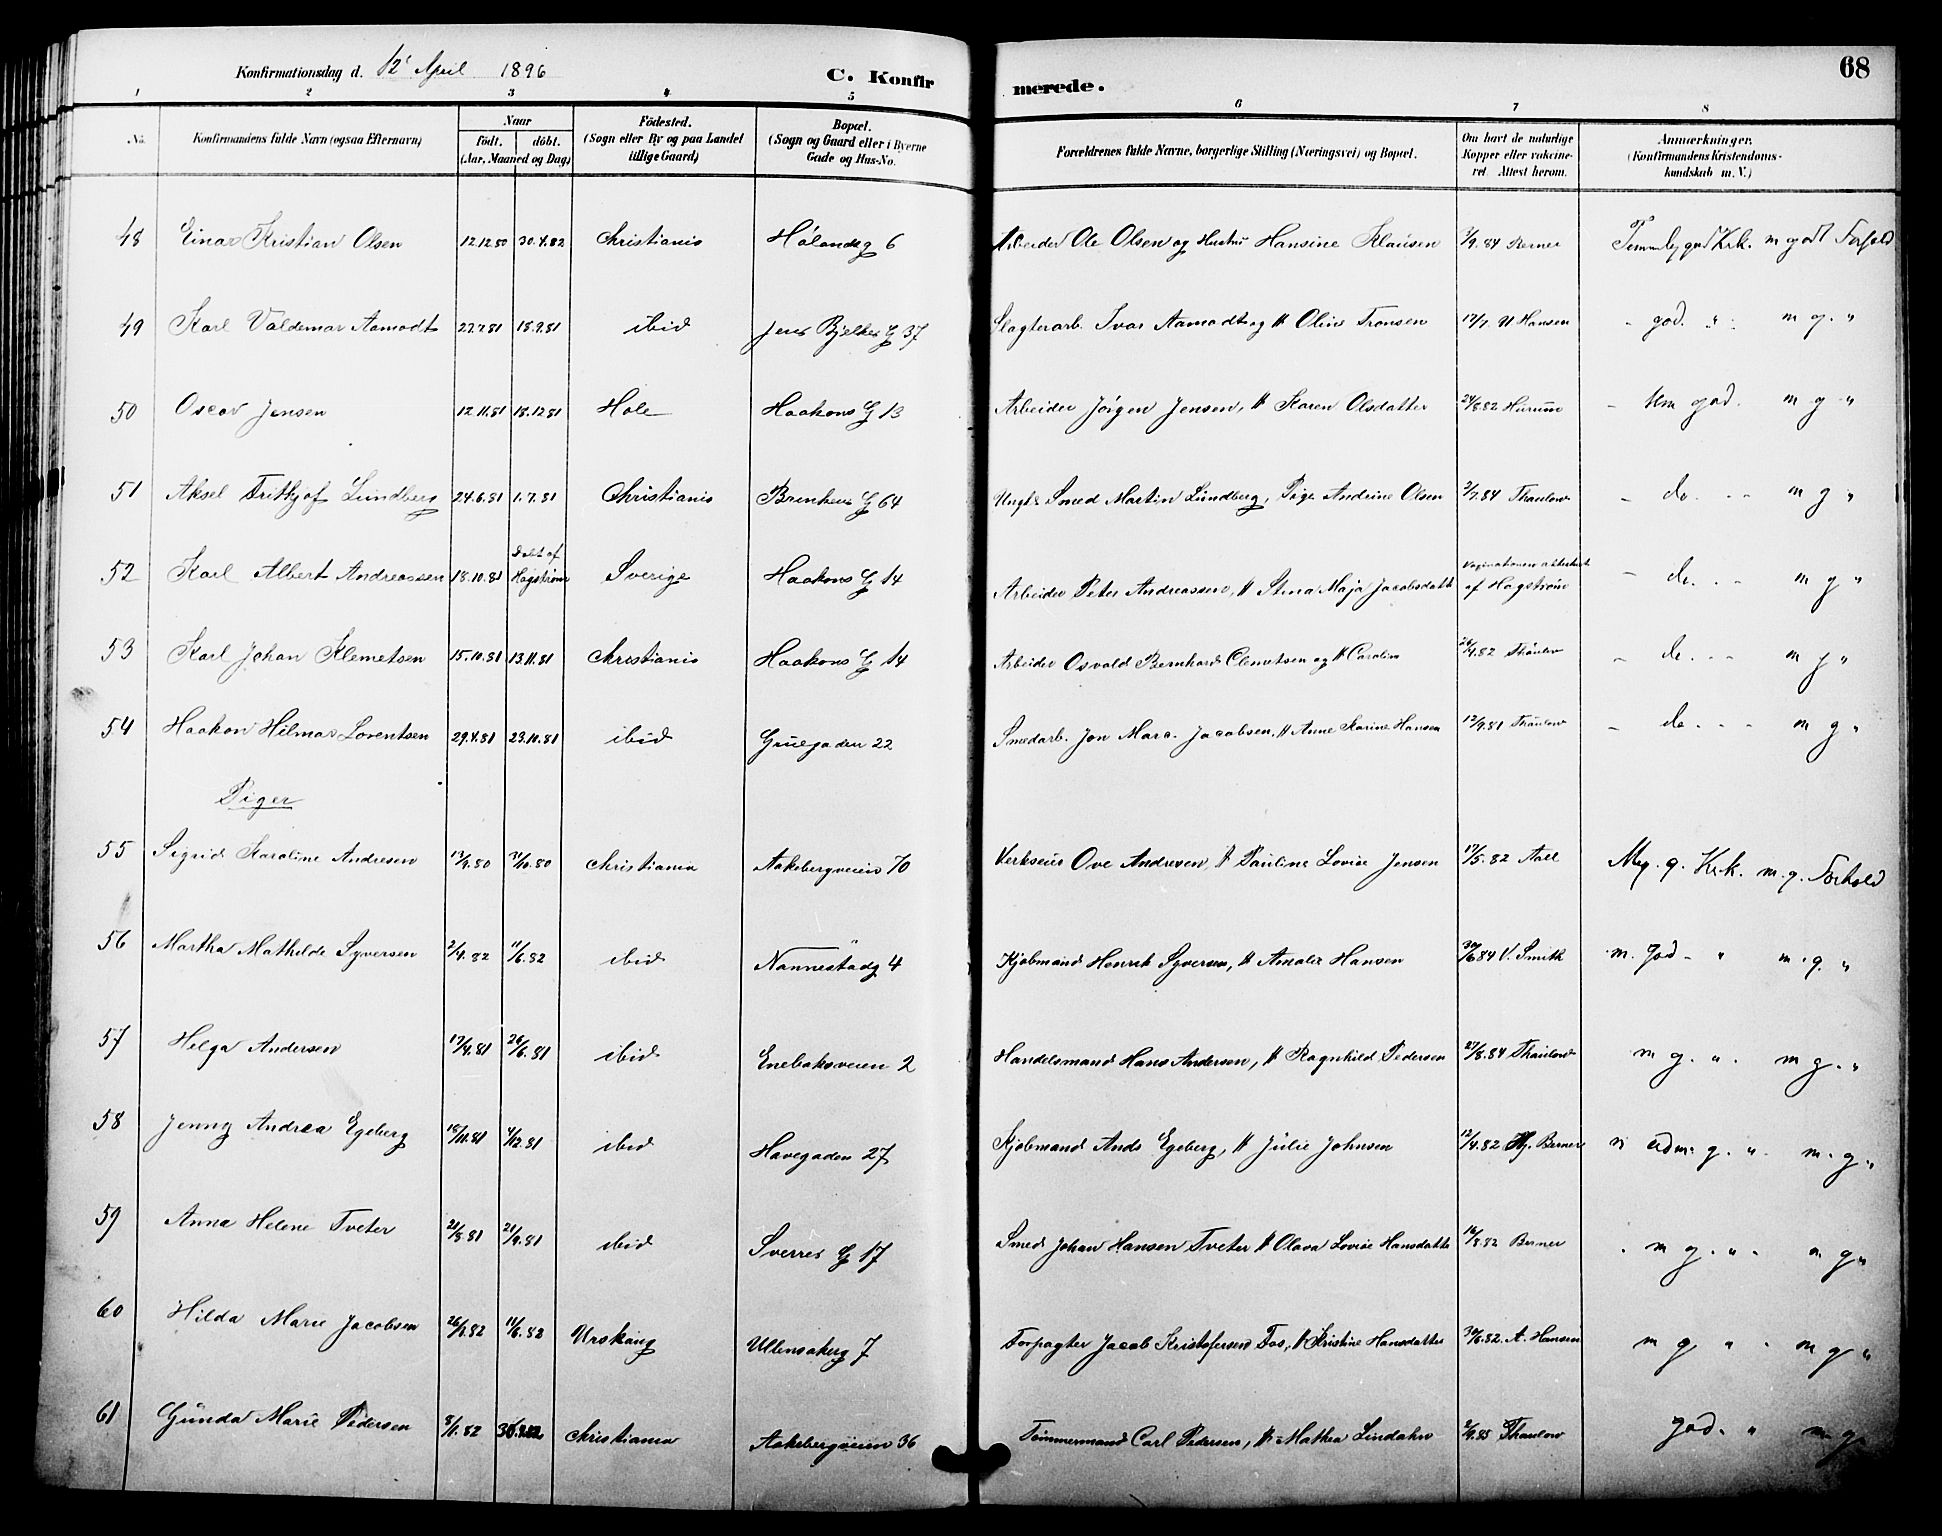 Konfirmationsdag d. 12' April 1896 C. Konfir merede. 68
1 2 3 4 5 6 7 8
No. Konfirmandens fulde Navn (ogsaa Efternavn) Naar født. døbt. (Aar, Maaned og Dag) Fødested. (Sogn eller By og paa Landet tillige Gaard) Bopæl. (Sogn og Gaard eller i Byerne Gade og Hus-No. Forældrenes fulde Navne, borgerlige Stilling (Næringsvei) og Bopæl. Om havt de naturlige Kopper eller vakcine- ret. Attest herom. Anmærkninger. (Konfirmandens Kristendoms- kundskab m. V.)
48 Einar Kristian Olsen 12.12.80 30.4.82 Christiania Hølandsg 6 Arbeider Ole Olsen og Hustru Hansine Klausen 3/9.84 Berner Temmelig god Krk. m godt Forhold
49 Karl Valdemar Aamodt 22.7.81 18.9.81 ibid Jens Bjelkes G 37 Slagterarb. Ivar Aamodt og H Oline Tronsen 17/7. N Hansen - god. " m g. "
50 Oscar Jensen 12.11.81 18.12.81 Hole Haakons G 13 Arbeider Jørgen Jensen, H Karen Olsdatter 24/8.82 Hurum - tem god. m g "
51 Aksel Fritkjof Lundberg 24.6.81 1.7.81 Christiania Brinkens G 64 Ungk. Smed Martin Lundberg, Pige Andrine Olsen 2/7.84 Thaulow - do. - - m g "
52 Karl Albert Andreassen 18.10.81 Døbt af Hagstrøm Sverige Haakons G 14 Arbeider Peter Andreassen, H Stina Maja Jacobsdatt af Hagstrøm - do. - - m g "
53 Karl Johan Klemetsen 15.10.81 13.11.81 Christiania Haakons G 14 Arbeider Osvald Bernhard Clemetsen og H Caroline 26/4.82 Thaulow - do. - - m g "
54 Haakon Hilmar Lorentsen 29.4.81 23.10.81 ibid Gruegaden 22 Smedarb. Jon Marc. Jacobsen, H Anne Karine Hansen 12/9.81 Thaulow - do. - - m g "
Piger
55 Sigrid Karoline Andresen 13/9.80 31/10.80 Christiania Aakebergveien 70 Verkseier Ove Andresen, H Pauline Lovise Jensen 17/5.82 Aall Meg. g. Krk. m. g. Forhold
56 Martha Mathilde Syversen 2/4.82 11/6.82 ibid Nannestadg 4 Kjøbmand Henrik Syversen, H Amalie Hansen 30/6 84 V. Smith m. god - " m. g. "
57 Helga Andersen 17/4.81 26/6.81 ibid Enebaksveien 2 Handelsmand Hans Andersen, H Ragnhild Pedersen 27/8.84 Thaulow m g. " m g. "
58 Jenny Andrea Egeberg 18/11.81 4/12.81 ibid Havegaden 27 Kjøbmand Ands Egeberg, H Julie Johnsen 12/4.82 Hj. Berner udm. g. " m. g "
59 Anna Helene Tveter 21/8.81 21/9.81 ibid Sverres G 17 Smed Johan Hansen Tveter H Olava Lovise Hansdatter 16/8.82 Berner m g. " m g "
60 Hilda Marie Jacobsen 26/1.82 11/6.82 Urskoug Ullensakerg 7 Forpagter Jacob Kristofersen Fos, H Kristine Hansdatter 30/6.82 A. Hansen m g " m g "
61 Gunda Marie Pedersen 8/1.82 Christiania Aakebergveien 36 Tømmermand Carl Pedersen, H Mathea Lindahn 2/9.85 Thaulow god. " m g